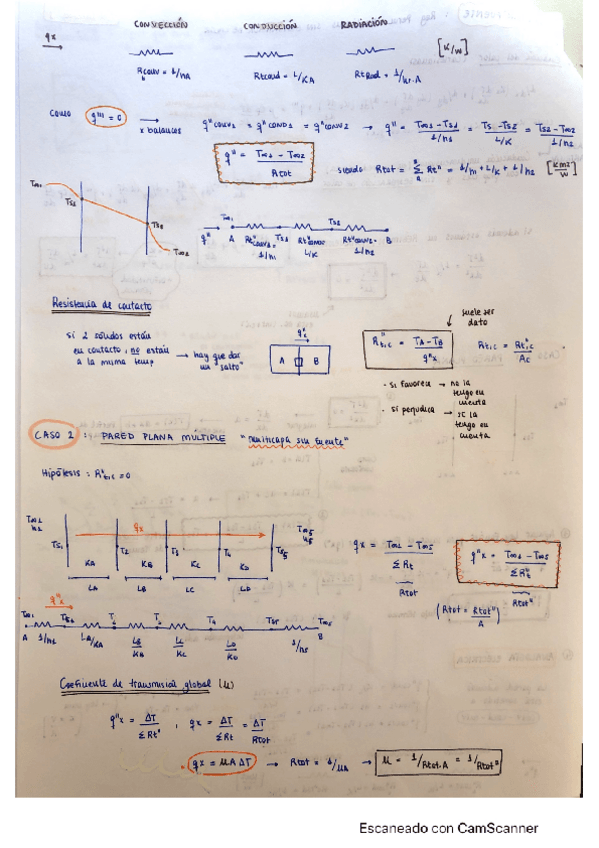 CONVECCIÓN CONDUCCIÓN RADIACIÓN
qx
[K/W]
Rconv = 1/hA Rtcond = L/KA RtRad = 1/hr.A
q''' = 0 x balances q''conv1 = q''cond1 = q''conv2 → q'' = T∞1 - Ts1 / 1/h1 = Ts1 - Ts2 / L/K = Ts2 - T∞2 / 1/h2
q'' = T∞1 - T∞2 / Rtot
siendo Rtot = Σ Rt'' = 1/h1 + L/K + 1/h2 [Km2/W]
T∞1
Ts1
Ts2
q'' A B
1/h1 L/K 1/h2
Resistencia de contacto
Si 2 sólidos están
en contacto, no están
a la misma temp
→ hay que dar
un "salto"
A B
suele ser
dato
R''t,c = TA - TB / q''x
Rt,c = R''t,c / Ac
· Si favorece → no la
tengo en
cuenta
· si perjudica → sí la
tengo en
cuenta
CASO 2 : PARED PLANA MÚLTIPLE "multicapa sin fuente"
Hipótesis : R''t,c = 0
qx
T∞1
h1
Ts1 T2 T3 T4 Ts5
T∞5
h5
KA KB KC KD
LA LB LC LD
qx = T∞1 - T∞5 / ΣRt
Rtot
q''x = T∞1 - T∞5 / ΣR''t
Rtot''
(Rtot = Rtot'' / A)
q''x
A 1/h1 LA/KA LB/KB LC/KC LD/KD 1/h5 B
Coeficiente de transmisión global (u)
q''x = ΔT / ΣRt'' , qx = ΔT / ΣRt = ΔT / Rtot
qx = UAΔT → Rtot = 1/UA → U = 1/Rtot.A = 1/Rtot''
Escaneado con CamScanner